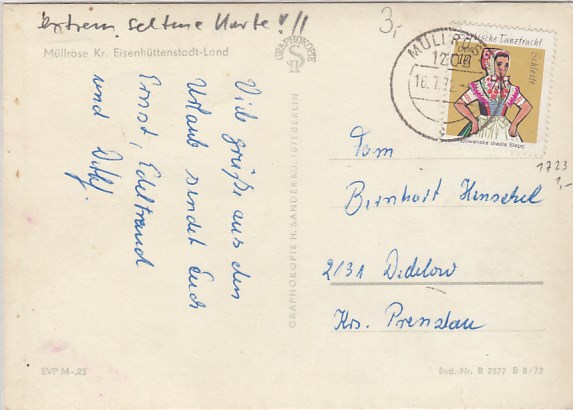 extrem seltene Karte!!!
3,-
Müllrose Kr. Eisenhüttenstadt-Land
GRAPHOKOPIE
H S
MÜLLROSE
1203
16.7.7
Sorbische Tanztracht
DDR
10
Schleife
Słowjanska drasta Slepo
1723
1,-
Viele grüße aus dem
Urlaub sendet Euch
Ernst, Edeltraud
und Detlef.
Fam
Bernhart Henschel
2131 Dedelow
Krs. Prenzlau
GRAPHOKOPIE H. SANDER KG, 1071 BERLIN
EVP M -,25
Best.-Nr. B 2577 B 8/72